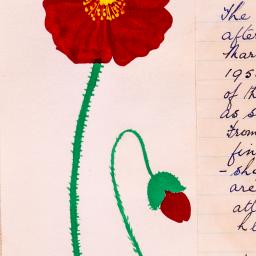 The
after
Mar
195
of th
as s
From
fin
- sh
are
att